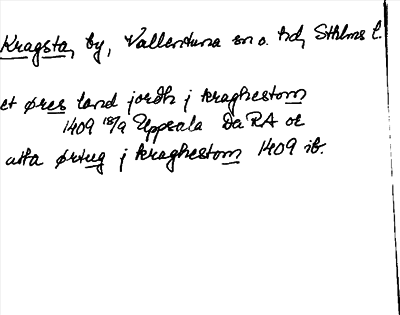 Kragsta, by, Vallentuna sn o. hd, Sthlms l.
et øres land jordh j kraghestom
1409 18/9 Uppsala DaRA or
atta ørtug j kraghestom 1409 ib.